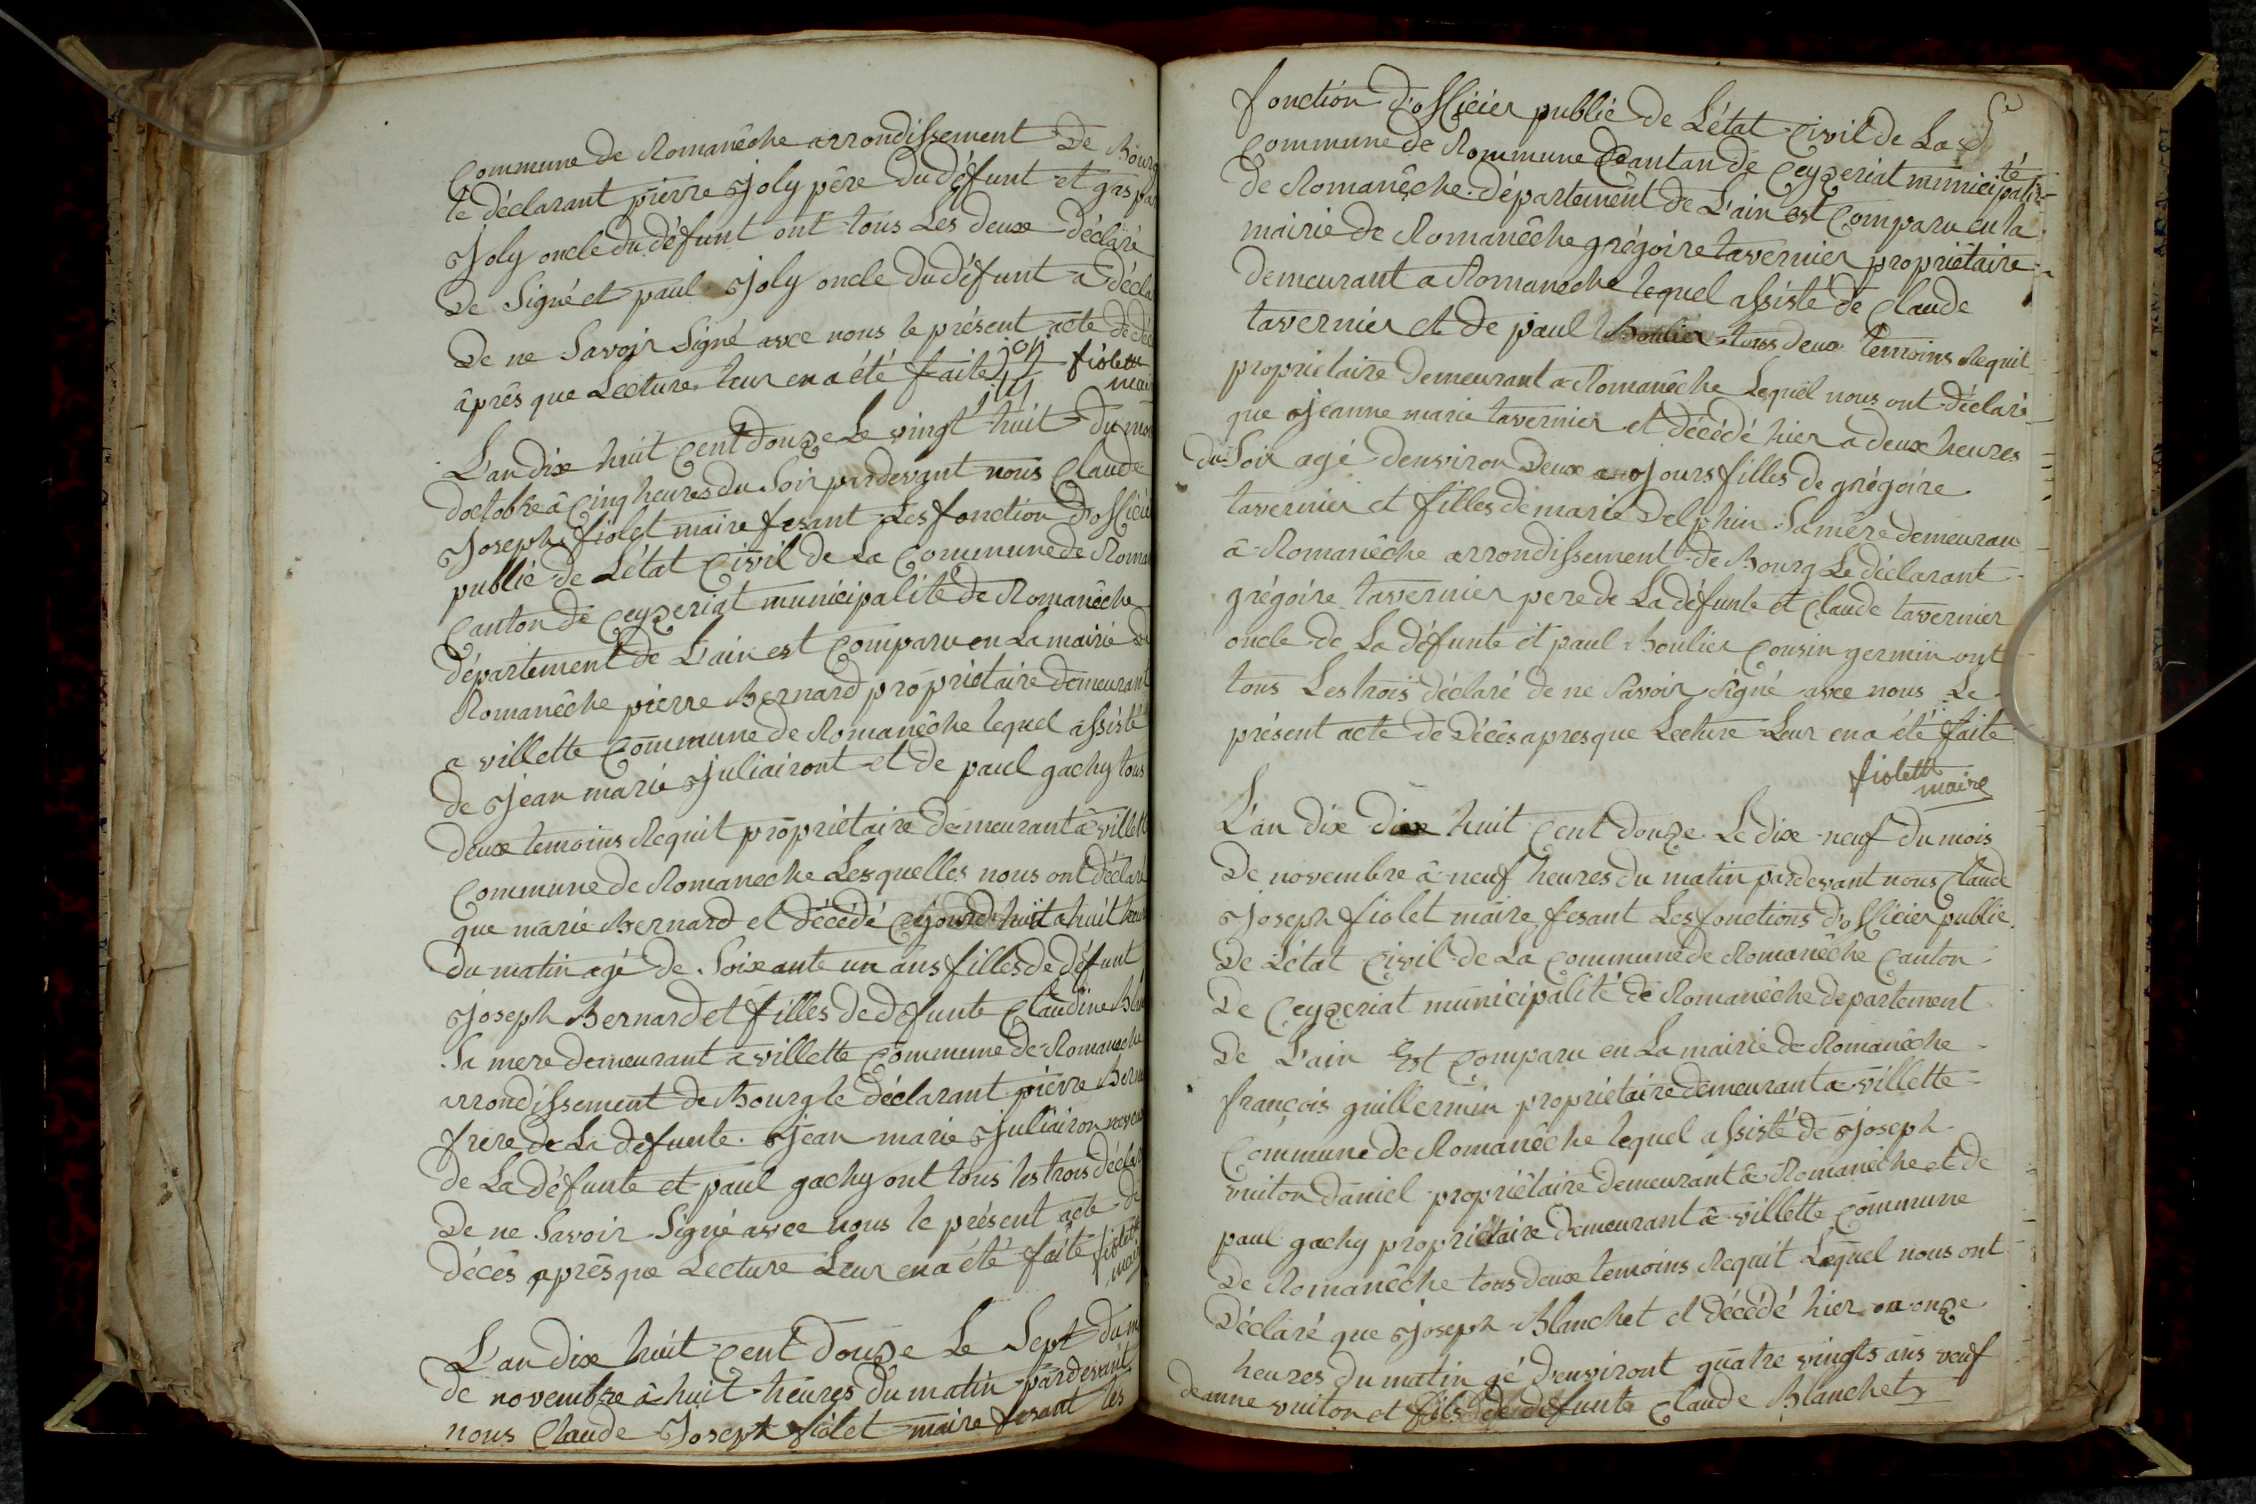 Commune de Romanêche arrondissement De Bourg
le déclarant pierre Joly pêre du défunt et gaspa
Joly oncle du défunt ont tous Les deux déclaré
De Signé et paul Joly oncle du défunt a décla
De ne Savoir Signé avec nous le présent acte de dé
âprês que Lecture leur en a été faite joly fiolet
maire
L'an dix huit Cent douze Le vingt huit du moi
doctobre â Cinq heures du Soir pardevant nous Claude
Joseph fiolet maire fesant Les fonction D'officie
publié de L'état Civil de La Commune de Roma
Canton de Ceyzeriat municipalité de Romanêche
département de L'ain est Comparu en La mairie De
Romanêche pierre Bernard propriétaire demeurant
a villette Commune de Romanêche lequel assisté
de Jean marie Juliairont et de paul gachy tous
deux temoins Requit propriétaire demeurant â villett
Commune de Romaneche Lesquelles nous ont déclaré
que marie Bernard et décédé Cejourdhuit a huit heur
du matin agé de Soixante un ans filles de défunt
Joseph Bernard et filles de défunte Claudine
Sa mere demeurant â villette Commune de Romaneche
arrondissement de Bourg le déclarant pierre Berna
frere de La défunte Jean marie Juliairon neveu
de La défunte et paul gachy ont tous les trois décla
De ne Savoir Signé avec nous le présent acte de
décês aprês que Lecture Leur en a été faite fiolet
maire
L'an dix huit Cent Douze Le Sept du m
de novembre â huit heures du matin pardevant
nous Claude Joseph fiolet maire fesant les
fonction D'officier publié de L'état Civil de La
Commune de Rommune Ceantan de Ceyzeriat municipalité
de Romanêche département de L'ain est Comparu en la
mairie de Romanêche grégoire tavernier propriétaire
demeurant a Romaneche lequel assisté de Claude
tavernier et de paul Boulier tous deux temoins Requit
propriétaire demeurant a Romanêche Lequel nous ont déclaré
que Jeanne marie tavernier et décédé hier a deux heures
du Soir agé denviron Deux jours filles de grégoire
tavernier et filles de marie Delphin Sa mêre demeuran
â Romanêche arrondissement de Bourg Le déclarant
grégoire tavernier pere de La défunte et Claude tavernier
oncle de La défunte et paul Boulier Cousin germin ont
tous Les trois déclaré de ne Savoir Signé avec nous Le
présent acte de Décês apres que Lecture Leur en a été faite
fiolet
maire
L'an dix dix huit Cent douze Le dix neuf du mois
De novembre â neuf heures du matin pardevant nous Claude
Joseph fiolet maire fesant Les fonctions d'officier publié
De L'état Civil de La Commune de Romanêche Canton
De Ceyzeriat municipalité de Romanêche departement
De L'ain Est Comparu en La mairie de Romanêche
françois guillermin propriétaire demeurant a villette
Commune de Romanêche lequel assisté de Joseph
vuiton daniel propriétaire demeurant â Romanêche et de
paul gachy propriétaire demeurant â villette Commune
De Romanêche tous deux temoins Requit Lequel nous ont
Déclaré que Joseph Blanchet et décédé hier onze
heures du matin gé d'environt quatre vingts ans veuf
deanne vuiton et fils de défunte Claude Blanchet